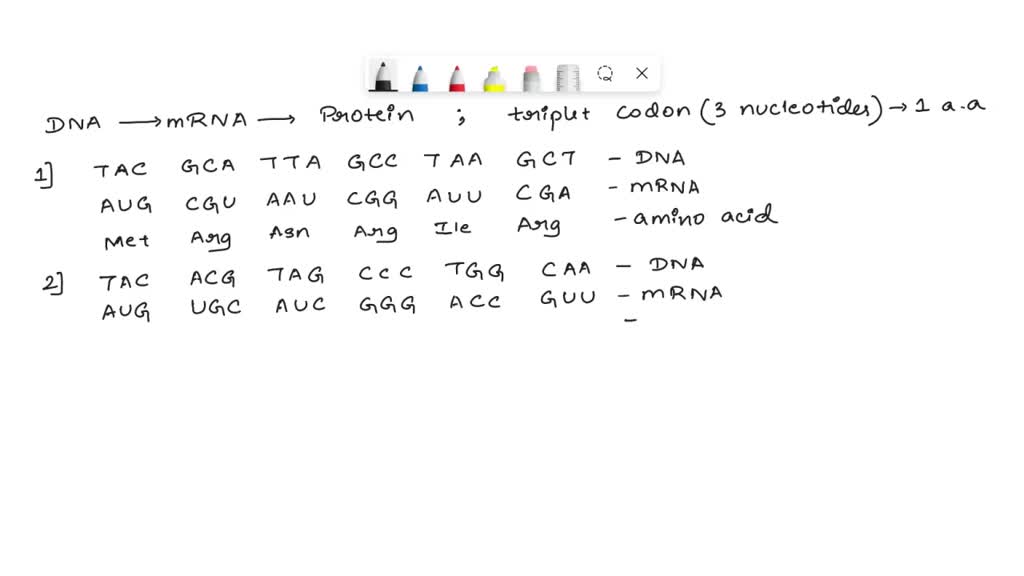 DNA → mRNA → Protein ; triplet codon (3 nucleotides) → 1 a.a
1] TAC GCA TTA GCC TAA GCT - DNA
AUG CGU AAU CGG AUU CGA - mRNA
Met Arg Asn Arg Ile Arg - amino acid
2] TAC ACG TAG CCC TGG CAA - DNA
AUG UGC AUC GGG ACC GUU - mRNA
-